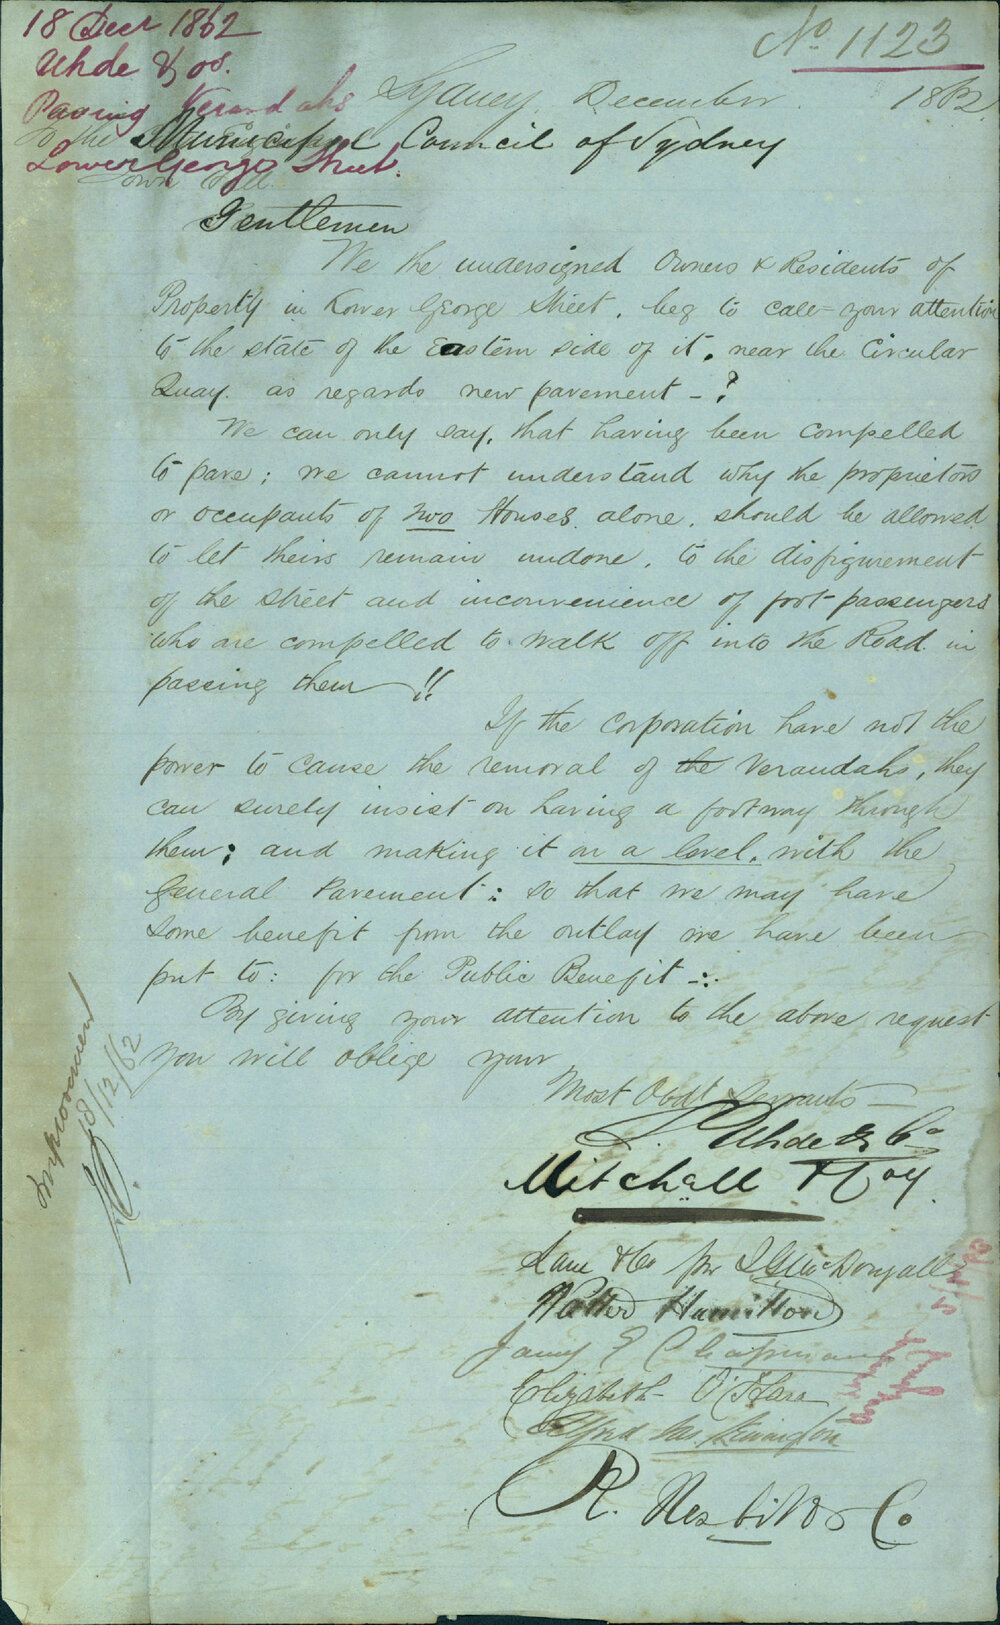 18 Decr 1862
Uhde & os.
Paving Verandahs
Lower George Street.
No 1123
Sydney December 1862
To the Municipal Council of Sydney
Town Hall
Gentlemen
We the undersigned Owners & Residents of
Property in Lower George Street, beg to call your attention
to the state of the Eastern side of it, near the Circular
Quay. as regards new pavement - ?
We can only say, that having been compelled
to pave; we cannot understand why the proprietors
or occupants of two Houses alone, should be allowed
to let theirs remain undone, to the disfigurement
of the street and inconvenience of foot-passengers
who are compelled to walk off into the Road in
passing them !!
If the corporation have not the
power to cause the removal of the Verandahs, they
can surely insist on having a footway through
them; and making it on a level, with the
General Pavement: so that we may have
some benefit from the outlay we have been
put to: for the Public Benefit -:
By giving your attention to the above request
you will oblige your
Most Obdt Servants
Uhde & Co
Mitchell & Coy.
Lane & Co for McDougall
Walter Hamilton
James E Chapman
Elizabeth O'Hara
R. Nesbitt & Co
Improvement
18/12/62